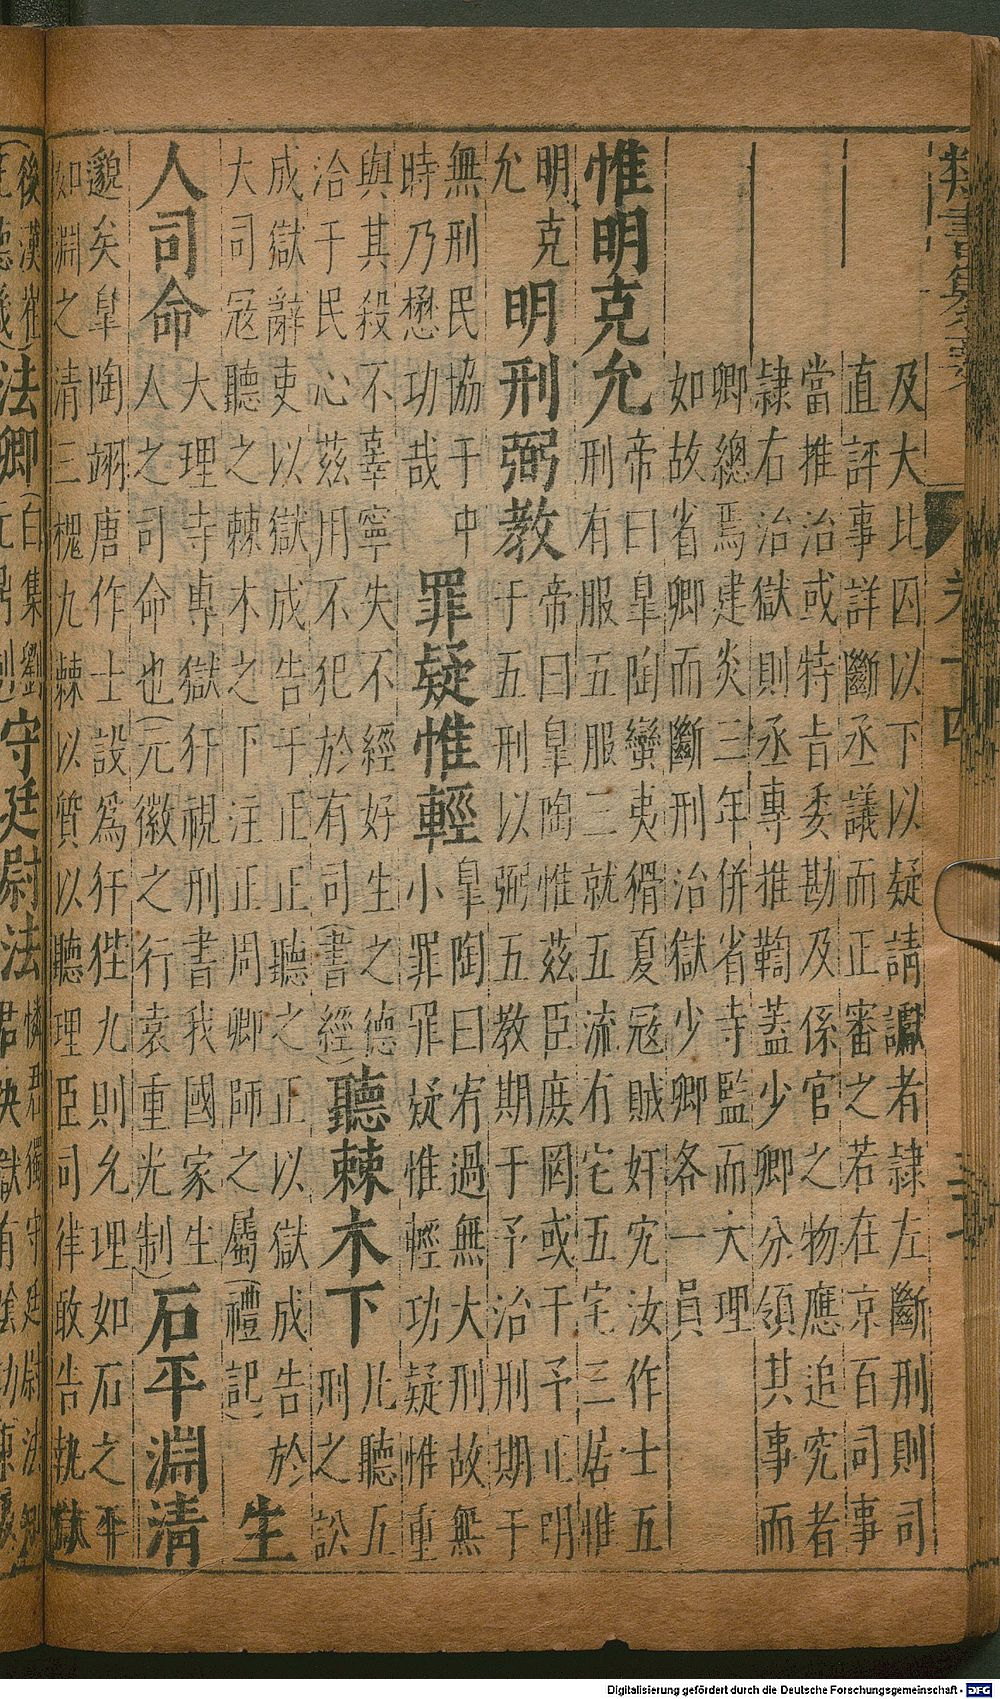 類書集要 卷十四
及大比囚以下以疑請讞者隸左斷刑則司
直評事詳斷丞議而正審之若在京百司事
當推治或特旨委勘及係官之物應追究者
隸右治獄則丞專推鞫蓋少卿分領其事而
卿總焉建炎三年併省寺監而大理
如故省卿而斷刑治獄少卿各一員
惟明克允
帝曰皐陶蠻夷猾夏寇賊奸宄汝作士五
刑有服五服三就五流有宅五宅三居惟
明克
允
明刑弼教
帝曰皐陶惟茲臣庶罔或干予正明
于五刑以弼五教期于予治刑期于
無刑民協于中
時乃懋功哉
罪疑惟輕
皐陶曰宥過無大刑故無
小罪罪疑惟輕功疑惟重
與其殺不辜寧失不經好生之德
洽于民心茲用不犯於有司(書經)
聽棘木下
凡聽五
刑之訟
成獄辭吏以獄成告于正正聽之正以獄成告於
大司寇聽之棘木之下注正周卿師之屬(禮記)
生
人司命
大理寺專獄犴視刑書我國家生
人之司命也(元徽之行袁重光制)
石平淵清
邈矣皐陶翊唐作士設爲犴狴九則允理如石之平
如淵之清三槐九棘以質以聽理臣司律敢告執獄
(後漢崔
法卿
(白集劉
守廷尉法
憐君獨守廷尉法
Digitalisierung gefördert durch die Deutsche Forschungsgemeinschaft - DFG